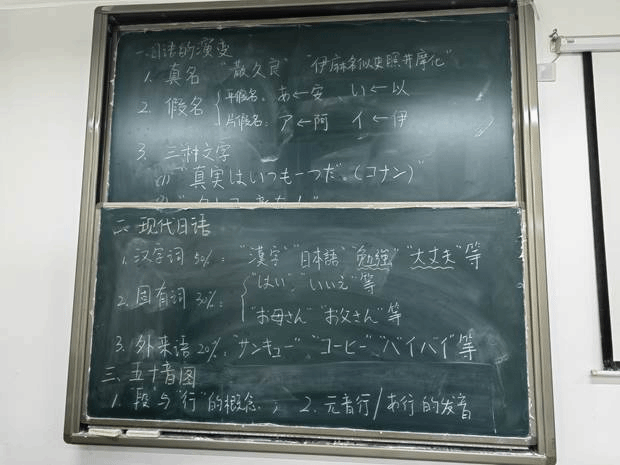 一.日语的演变
1. 真名 "散久良" "伊麻
2. 假名 { 平假名: あ←安 い←以
片假名: ア←阿 イ←伊
3. 三种文字
(1) "真実はいつも一つだ。(コナン)"
二. 现代日语
1. 汉字词 50%: "漢字" "日本語" "勉強" "大丈夫" 等
2. 固有词 30%: { "はい" "いいえ" 等
"お母さん" "お父さん" 等
3. 外来语 20%: "サンキュー" "コーヒー" "バイバイ" 等
三. 五十音图
1. 段与"行"的概念; 2. 元音行/あ行的发音